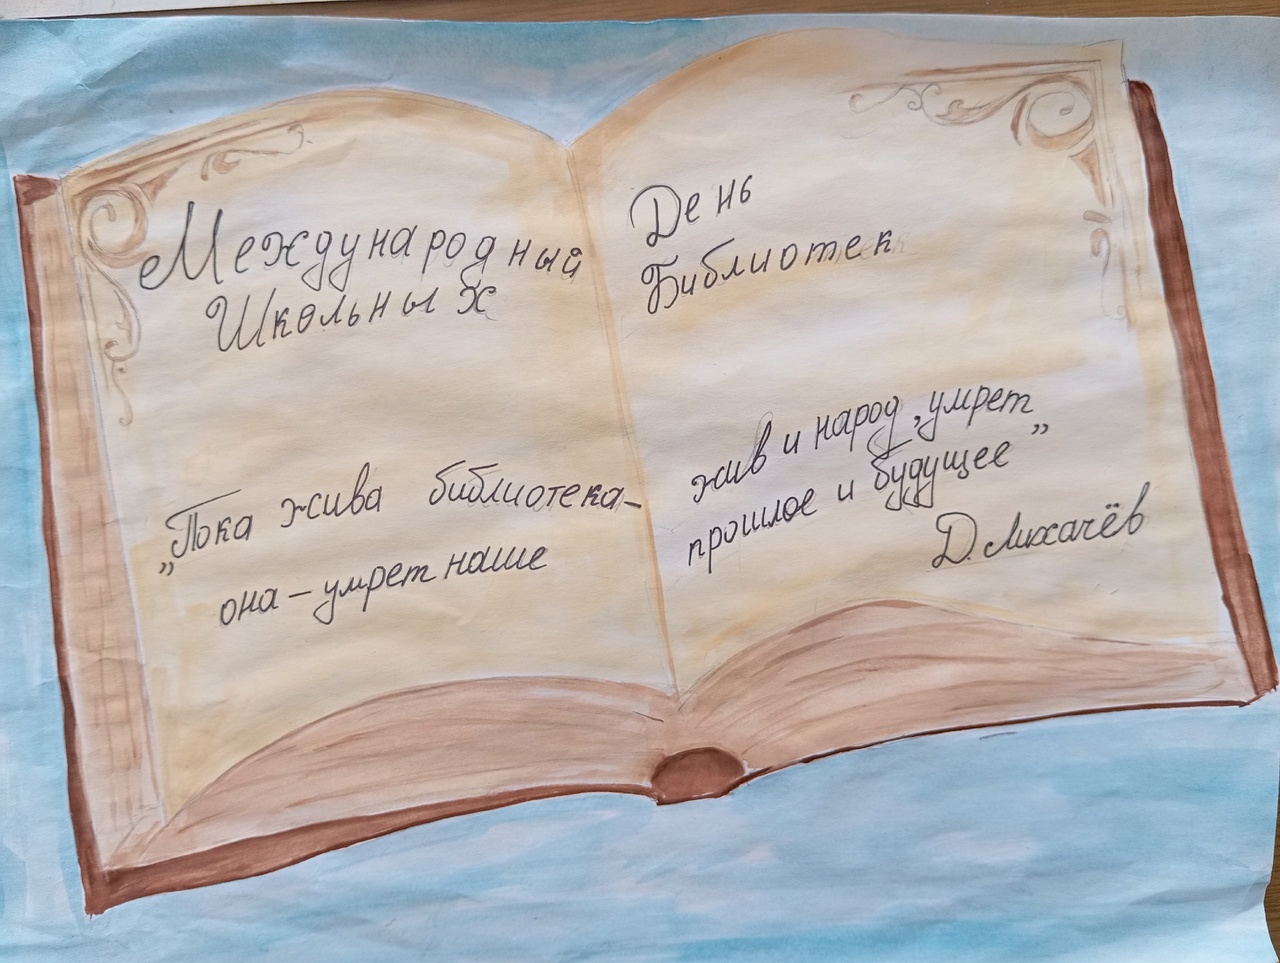 Международный
Школьных
День
Библиотек
„Пока жива библиотека–
она – умрет наше
жив и народ, умрет
прошлое и будущее”
Д. Лихачёв